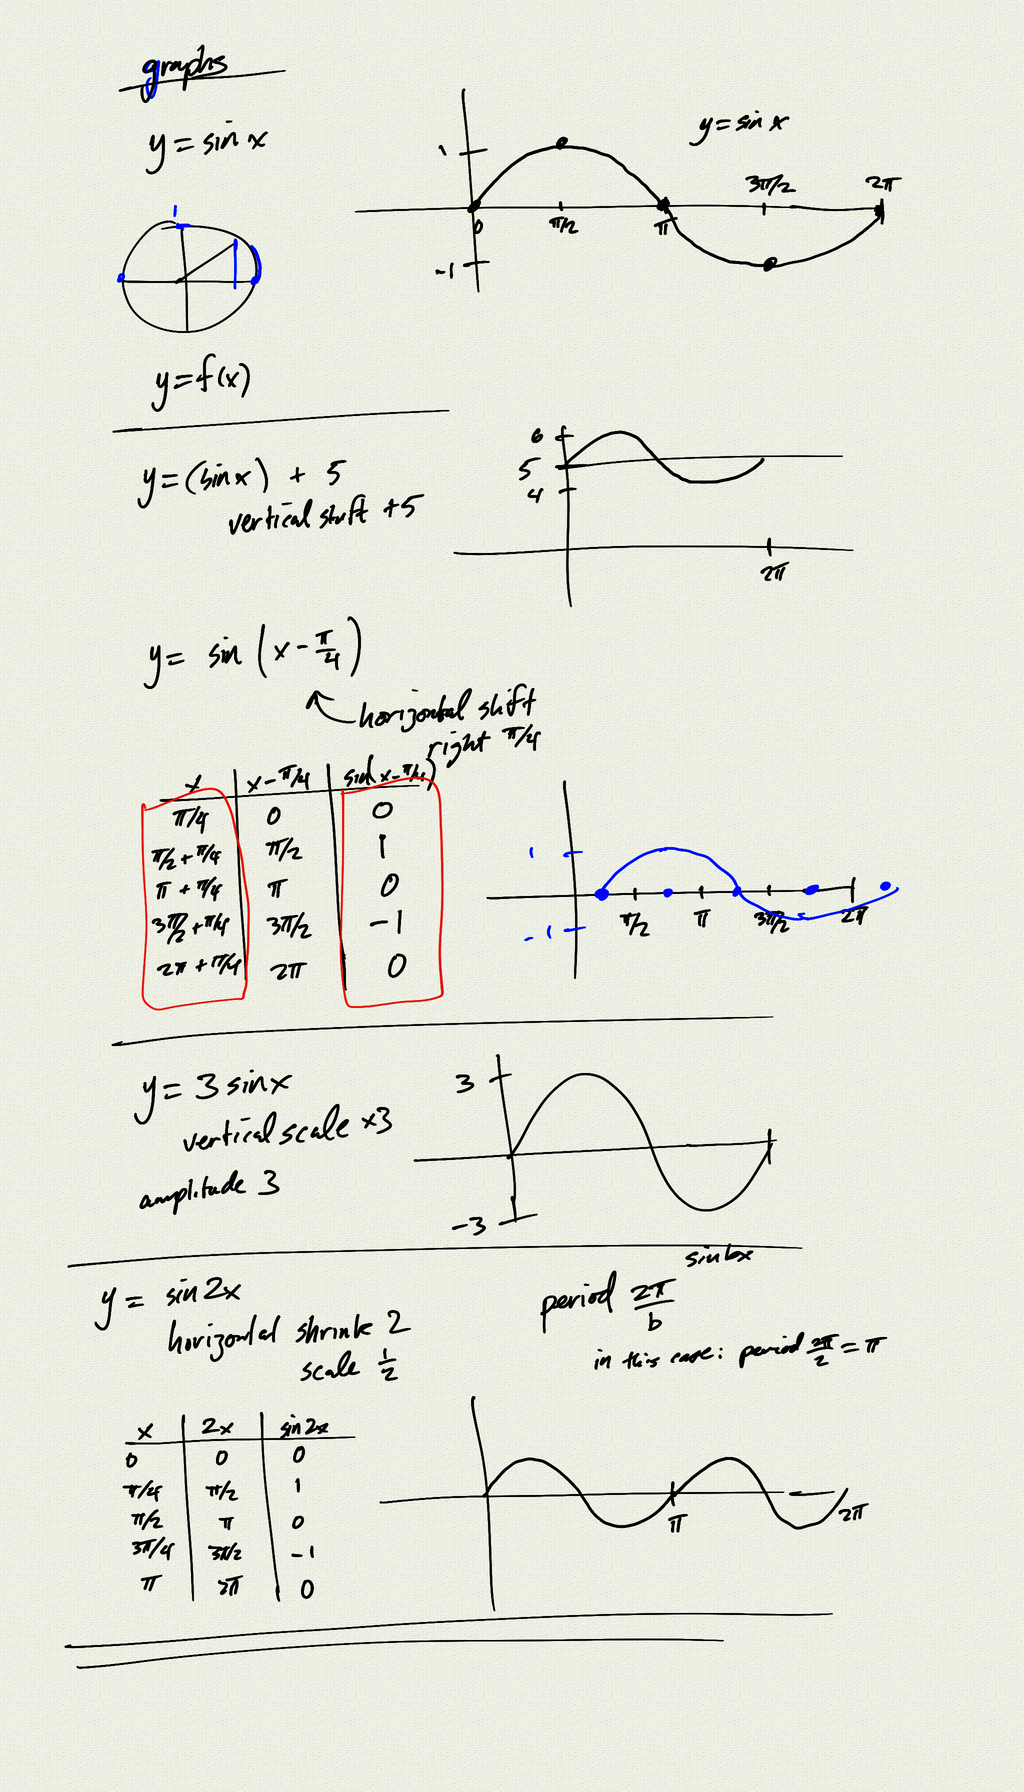 graphs
y = sin x
1
-1
0
π/2
π
3π/2
2π
y = sin x
1
y = f(x)
y = (sin x) + 5
vertical shift +5
6
5
4
2π
y = sin (x - π/4)
horizontal shift
right π/4
x | x - π/4 | sin(x - π/4)
π/4 | 0 | 0
π/2 + π/4 | π/2 | 1
π + π/4 | π | 0
3π/2 + π/4 | 3π/2 | -1
2π + π/4 | 2π | 0
1
-1
π/2
π
3π/2
2π
y = 3 sin x
vertical scale x3
amplitude 3
3
-3
y = sin 2x
horizontal shrink 2
scale 1/2
sin bx
period 2π/b
in this case: period 2π/2 = π
x | 2x | sin 2x
0 | 0 | 0
π/4 | π/2 | 1
π/2 | π | 0
3π/4 | 3π/2 | -1
π | 2π | 0
π
2π